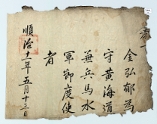 教旨
金弘郁爲
守黃海道
兼兵馬水
軍節度使
者
順治十一年五月十三日